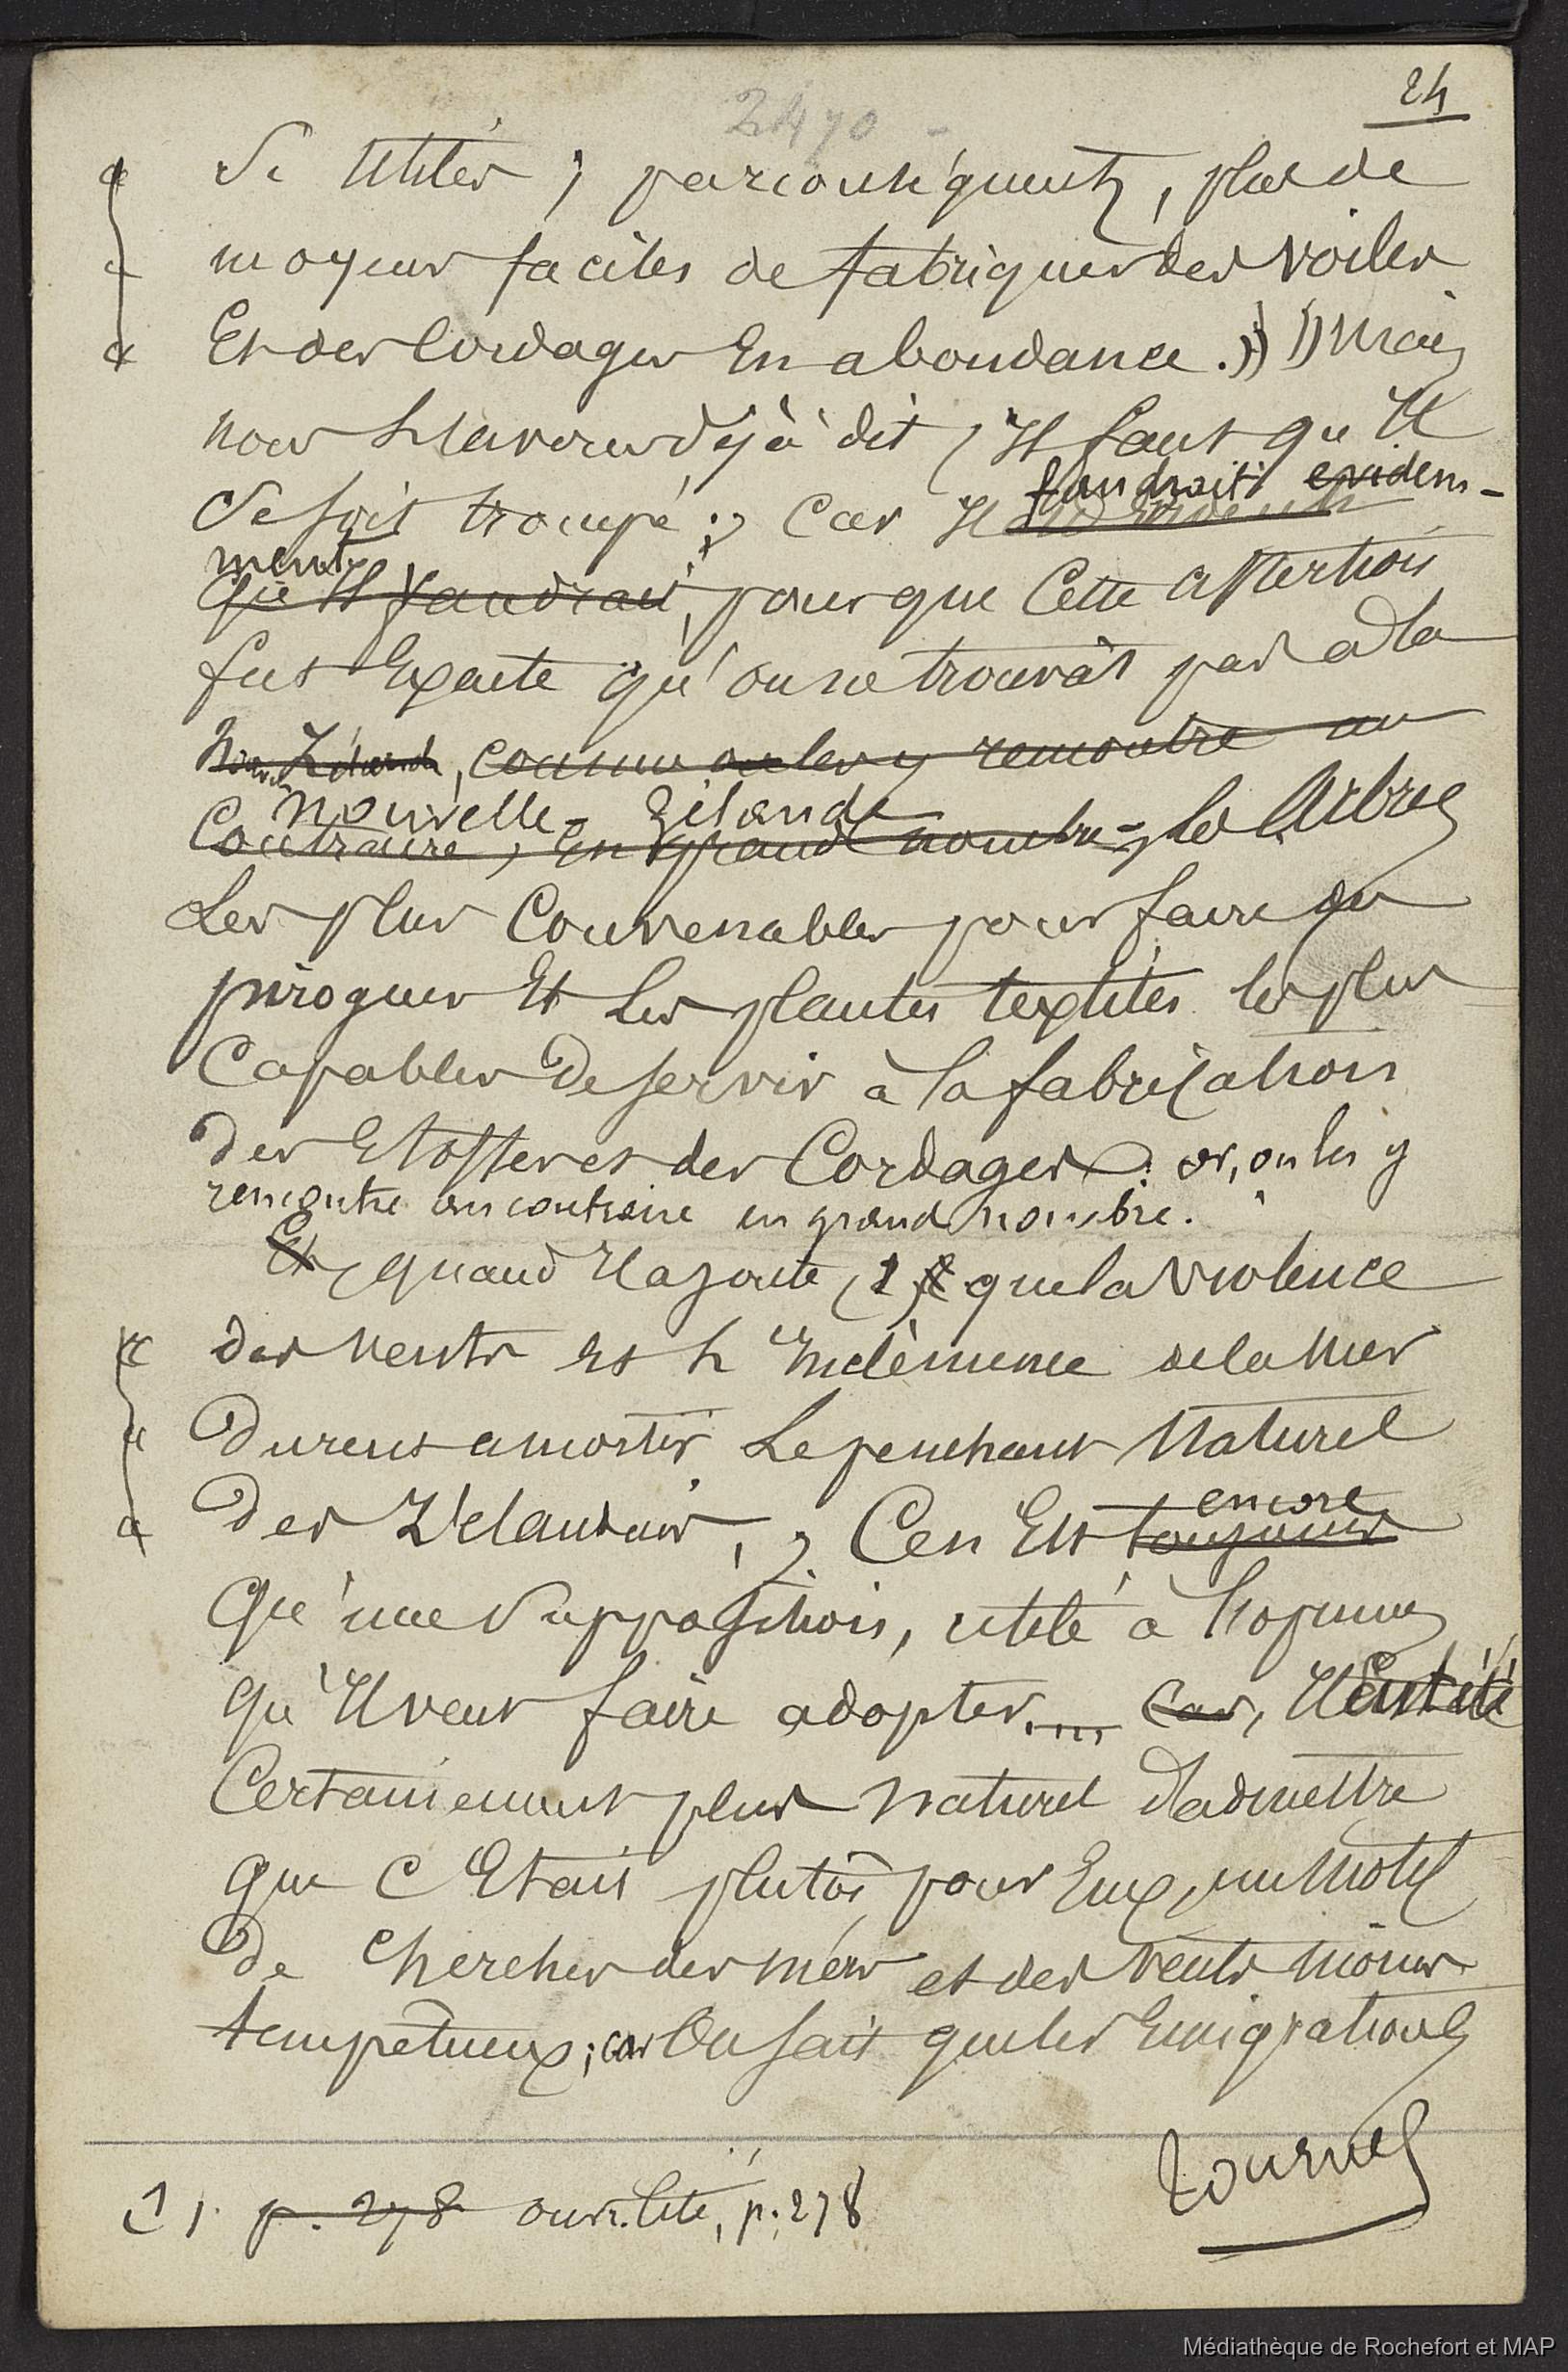 24
2470
« si utiles ; par conséquent, plus de
« moyens faciles de fabriquer des voiles
« et des cordages en abondance. » Mais
nous l'avons déjà dit, il faut qu'il
se soit trompé ; car il faudrait évidem-
ment
qu'il faudrait, pour que cette assertion
fut exacte qu'on ne trouvât pas à la
Nouv. Zélande, comme on les y rencontre au
Nouvelle-Zélande
contraire, en grand nombre, les arbres
les plus convenables pour faire des
pirogues et les plantes textiles les plus
capables de servir à la fabrication
des étoffes et des cordages : or, on les y
rencontre au contraire en grand nombre.
Et, quand il ajoute (1) que la violence
« des vents et l'inclémence de la mer
« durent amortir le penchant naturel
« des Zélandais, » ce n'est encore
toujours
qu'une supposition, utile à l'opinion
qu'il veut faire adopter.... Car, il eut été
certainement plus naturel d'admettre
que c'était plutôt pour eux, un motif
de chercher des mers et des vents moins
tempêtueux ; car on sait que les émigrations
tournez
(1) p. 278 ouv. cité, p. 278
Médiathèque de Rochefort et MAP